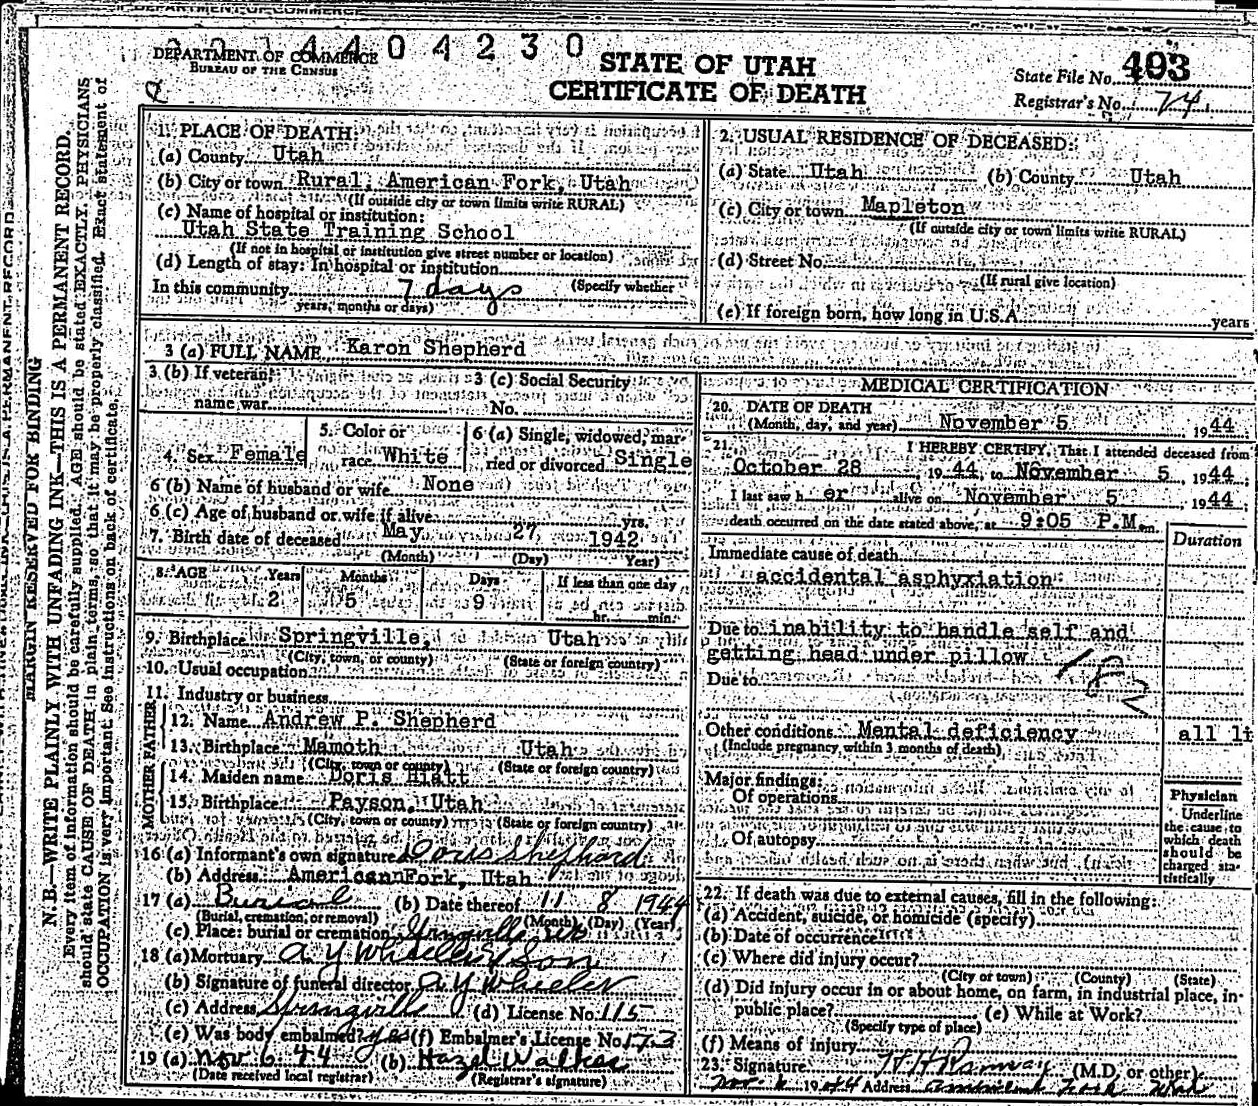 3 0 1 4 4 0 4 2 3 0
DEPARTMENT OF COMMERCE
BUREAU OF THE CENSUS
STATE OF UTAH
CERTIFICATE OF DEATH
State File No. 403
Registrar's No. 74
MARGIN RESERVED FOR BINDING
N. B.—WRITE PLAINLY WITH UNFADING INK—THIS IS A PERMANENT RECORD.
Every item of information should be carefully supplied. AGE should be stated EXACTLY. PHYSICIANS
should state CAUSE OF DEATH in plain terms, so that it may be properly classified. Exact statement of
OCCUPATION is very important. See instructions on back of certificate.
1. PLACE OF DEATH
(a) County Utah
(b) City or town Rural, American Fork, Utah
(If outside city or town limits write RURAL)
(c) Name of hospital or institution:
Utah State Training School
(If not in hospital or institution give street number or location)
(d) Length of stay: In hospital or institution
(Specify whether
In this community 7 days
years, months or days)
2. USUAL RESIDENCE OF DECEASED:
(a) State Utah (b) County Utah
(c) City or town Mapleton
(If outside city or town limits write RURAL)
(d) Street No.
(If rural give location)
(e) If foreign born, how long in U.S.A. years
3 (a) FULL NAME Karon Shepherd
3. (b) If veteran, name war
3 (c) Social Security No.
4. Sex Female
5. Color or race White
6 (a) Single, widowed, married or divorced Single
6 (b) Name of husband or wife None
6 (c) Age of husband or wife if alive yrs.
7. Birth date of deceased May 27 1942
(Month) (Day) Year)
8. AGE Years Months Days If less than one day
2 5 9 hr. min.
9. Birthplace Springville, Utah
(City, town, or county) (State or foreign country)
10. Usual occupation
11. Industry or business
FATHER
12. Name Andrew P. Shepherd
13. Birthplace Mamoth Utah
(City, town or county) (State or foreign country)
MOTHER
14. Maiden name Doris Hiatt
15. Birthplace Payson, Utah
(City, town or county) (State or foreign country)
16 (a) Informant's own signature Doris Shepherd
(b) Address American Fork, Utah
17 (a) Burial (b) Date thereof 11 8 1944
(Burial, cremation, or removal) (Month) (Day) (Year)
(c) Place: burial or cremation Springville Ut
18 (a) Mortuary A Y Wheeler & Son
(b) Signature of funeral director A Y Wheeler
(c) Address Springville (d) License No. 115
(e) Was body embalmed? yes (f) Embalmer's License No. 173
19 (a) Nov 6 44 (b) Hazel Walker
(Date received local registrar) (Registrar's signature)
MEDICAL CERTIFICATION
20. DATE OF DEATH
(Month, day, and year) November 5 , 1944
21. I HEREBY CERTIFY, That I attended deceased from
October 28 1944, to November 5, 1944
I last saw h er alive on November 5, 1944
death occurred on the date stated above, at 9:05 P.M. m.
Duration
Immediate cause of death
accidental asphyxiation
Due to inability to handle self and
getting head under pillow
182
Due to
Other conditions Mental deficiency all li
(Include pregnancy within 3 months of death)
Major findings:
Of operations
Of autopsy
Physician
Underline
the cause to
which death
should be
charged sta-
tistically
22. If death was due to external causes, fill in the following:
(a) Accident, suicide, or homicide (specify)
(b) Date of occurrence
(c) Where did injury occur?
(City or town) (County) (State)
(d) Did injury occur in or about home, on farm, in industrial place, in
public place? (e) While at Work?
(Specify type of place)
(f) Means of injury
23. Signature (M.D. or other)
Nov. 6 1944 Address American Fork Utah